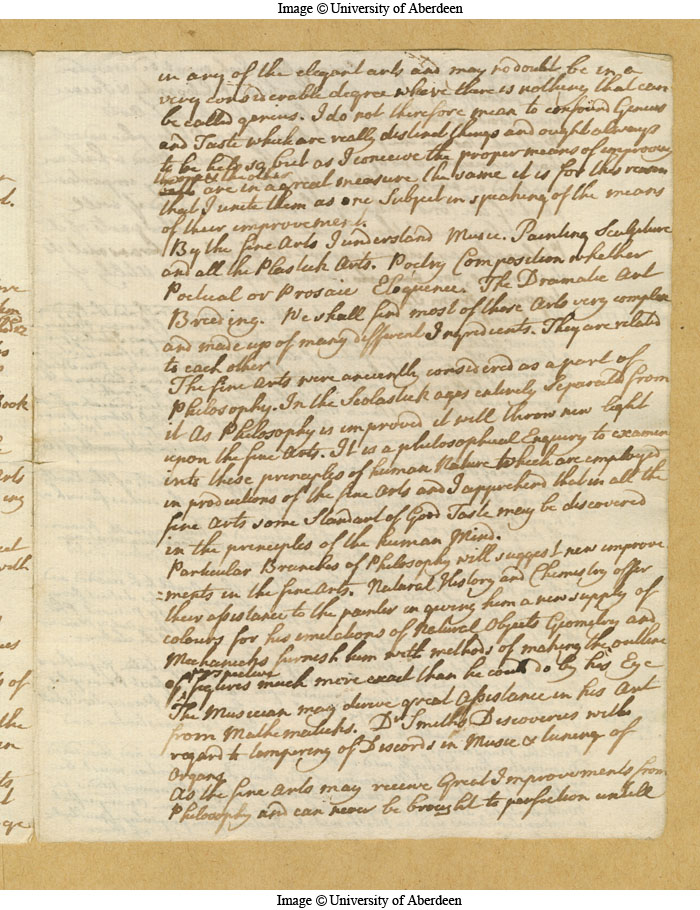 Image © University of Aberdeen
in any of the elegant arts and may no doubt be in a
very considerable degree where there is nothing that can
be called genius. I do not therefore mean to confound Genius
and Taste which are really distinct things and ought always
to be kept so, but as I conceive the proper means of improving
the one & the other
are in a great measure the same it is for this reason
that I unite them as one Subject in speaking of the means
of their improvement.
By the fine Arts I understand Music. Painting Sculpture
and all the Plastick Arts. Poetry Composition whether
Poetical or Prosaic Eloquence. The Dramatic Art
Breeding. We shall find most of these Arts very complex
and made up of many different Ingredients. They are related
to each other
The fine Arts were anciently considered as a part of
Philosophy. In the Scolastick ages entirely Separated from
it As Philosophy is improved it will throw new light
upon the fine Arts. It is a philosophical Enquiry to examine
into these principles of human Nature which are employed
in productions of the fine Arts and I apprehend that in all the
fine Arts some Standart of Good Taste may be discovered
in the principles of the human Mind.
Particular Branches of Philosophy will suggest new improve
=ments in the fine Arts. Natural History and Chemistry offer
their assistance to the painter in giving him a new supply of
colours for his imitations of Natural Objects Geometry and
Mechanicks furnish him with methods of making the outline
perspective
of figures much more exact than he could do by his Eye
The Musician may derive great Assistance in his Art
from Mathematicks. Dr Smiths Discoveries with
regard to tempering of Discords in Music & tuning of
Organs
As the fine Arts may receive Great Improvements from
Philosophy and can never be brought to perfection untill
Image © University of Aberdeen